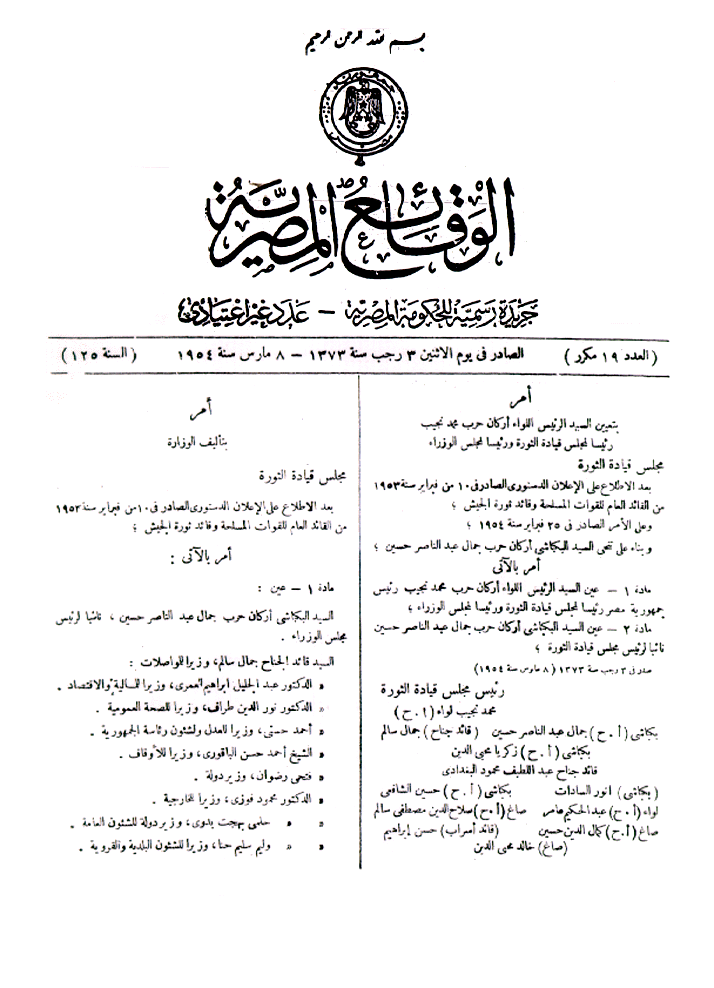 بسم الله الرحمن الرحيم
جمهورية
مصر
الوقائع المصرية
جريدة رسمية للحكومة المصرية – عدد غير اعتيادى
(العدد ١٩ مكرر) الصادر فى يوم الاثنين ٣ رجب سنة ١٣٧٣ – ٨ مارس سنة ١٩٥٤ (السنة ١٢٥)
أمر
بتعيين السيد الرئيس اللواء أركان حرب محمد نجيب
رئيسا لمجلس قيادة الثورة ورئيسا لمجلس الوزراء
مجلس قيادة الثورة
بعد الاطلاع على الإعلان الدستورى الصادر فى ١٠ من فبراير سنة ١٩٥٣
من القائد العام للقوات المسلحة وقائد ثورة الجيش ؛
وعلى الأمر الصادر فى ٢٥ فبراير سنة ١٩٥٤ ؛
وبناء على تنحى السيد البكباشى أركان حرب جمال عبد الناصر حسين ؛
أمر بالآتى
مادة ١ – عين السيد الرئيس اللواء أركان حرب محمد نجيب رئيس
جمهورية مصر رئيسا لمجلس قيادة الثورة ورئيسا لمجلس الوزراء ؛
مادة ٢ – عين السيد البكباشى أركان حرب جمال عبد الناصر حسين
نائبا لرئيس مجلس قيادة الثورة ؛
صدر فى ٣ رجب سنة ١٣٧٣ (٨ مارس سنة ١٩٥٤)
رئيس مجلس قيادة الثورة
محمد نجيب لواء (ا . ح)
بكباشى (أ . ح) جمال عبد الناصر حسين (قائد جناح) جمال سالم
بكباشى (أ . ح) زكريا محيى الدين
قائد جناح عبد اللطيف محمود البغدادى
(بكباشى) أنور السادات بكباشى (أ . ح) حسين الشافعى
لواء (أ . ح) عبد الحكيم عامر صاغ (أ . ح) صلاح الدين مصطفى سالم
صاغ (أ . ح) كمال الدين حسين (قائد أسراب) حسن إبراهيم
(صاغ) خالد محيى الدين
أمر
بتأليف الوزارة
مجلس قيادة الثورة
بعد الاطلاع على الإعلان الدستورى الصادر فى ١٠ من فبراير سنة ١٩٥٣
من القائد العام للقوات المسلحة وقائد ثورة الجيش ؛
أمر بالآتى :
مادة ١ – عين :
السيد البكباشى أركان حرب جمال عبد الناصر حسين ، نائبا لرئيس
مجلس الوزراء .
السيد قائد الجناح جمال سالم، وزيرا للواصلات :
» الدكتور عبد الجليل ابراهيم العمرى، وزيرا للمالية والاقتصاد .
» الدكتور نور الدين طراف، وزيرا للصحة العمومية .
» أحمد حسنى، وزيرا للعدل ولشئون رئاسة الجمهورية .
» الشيخ أحمد حسن الباقورى، وزيرا للأوقاف .
» فتحى رضوان، وزير دولة .
» الدكتور محمود فوزى، وزيرا للخارجية .
» » حلمى بهجت بدوى، وزير دولة للشئون العامة .
» » وليم سليم حنا، وزيرا للشئون البلدية والقروية .